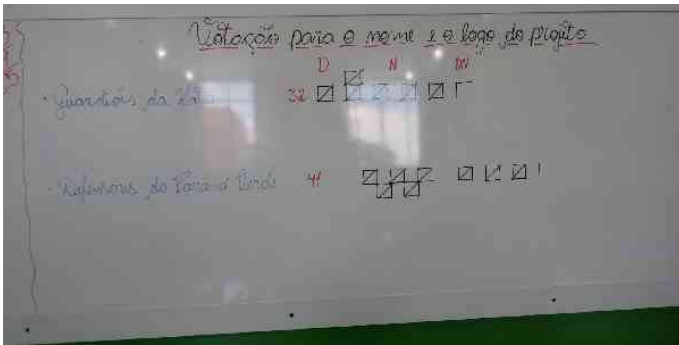 Votação para o nome e o logo do projeto
D N DN
· Guardiões da 32
· Defensores do Paraná Verde 41